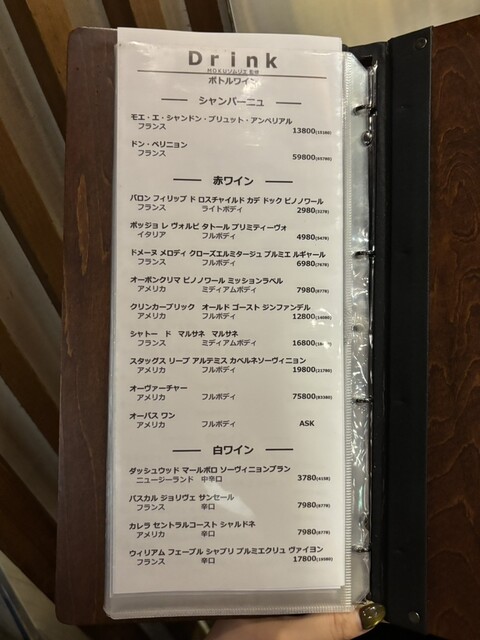 Drink
HOKUソムリエ 監修
ボトルワイン
シャンパーニュ
モエ・エ・シャンドン・ブリュット・アンペリアル
フランス 13800(15180)
ドン・ペリニョン
フランス 59800(65780)
赤ワイン
バロン フィリップ ド ロスチャイルド カデ ドック ピノノワール
フランス ライトボディ 2980(3278)
ポッジョ レ ヴォルピ タトール プリミティーヴォ
イタリア フルボディ 4980(5478)
ドメーヌ メロディ クローズエルミタージュ プルミエ ルギャール
フランス フルボディ 6980(7678)
オーボンクリマ ピノノワール ミッションラベル
アメリカ ミディアムボディ 7980(8778)
クリンカーブリック オールド ゴースト ジンファンデル
アメリカ フルボディ 12800(14080)
シャトー ド マルサネ マルサネ
フランス ミディアムボディ 16800
スタッグス リープ アルテミス カベルネソーヴィニョン
アメリカ フルボディ 19800(21780)
オーヴァーチャー
アメリカ フルボディ 75800(83380)
オーパス ワン
アメリカ フルボディ ASK
白ワイン
ダッシュウッド マールボロ ソーヴィニョンブラン
ニュージーランド 中辛口 3780(4158)
パスカル ジョリヴェ サンセール
フランス 辛口 7980(8778)
カレラ セントラルコースト シャルドネ
アメリカ 辛口 7980(8778)
ウィリアム フェーブル シャブリ プルミエクリュ ヴァイヨン
フランス 辛口 17800(19580)